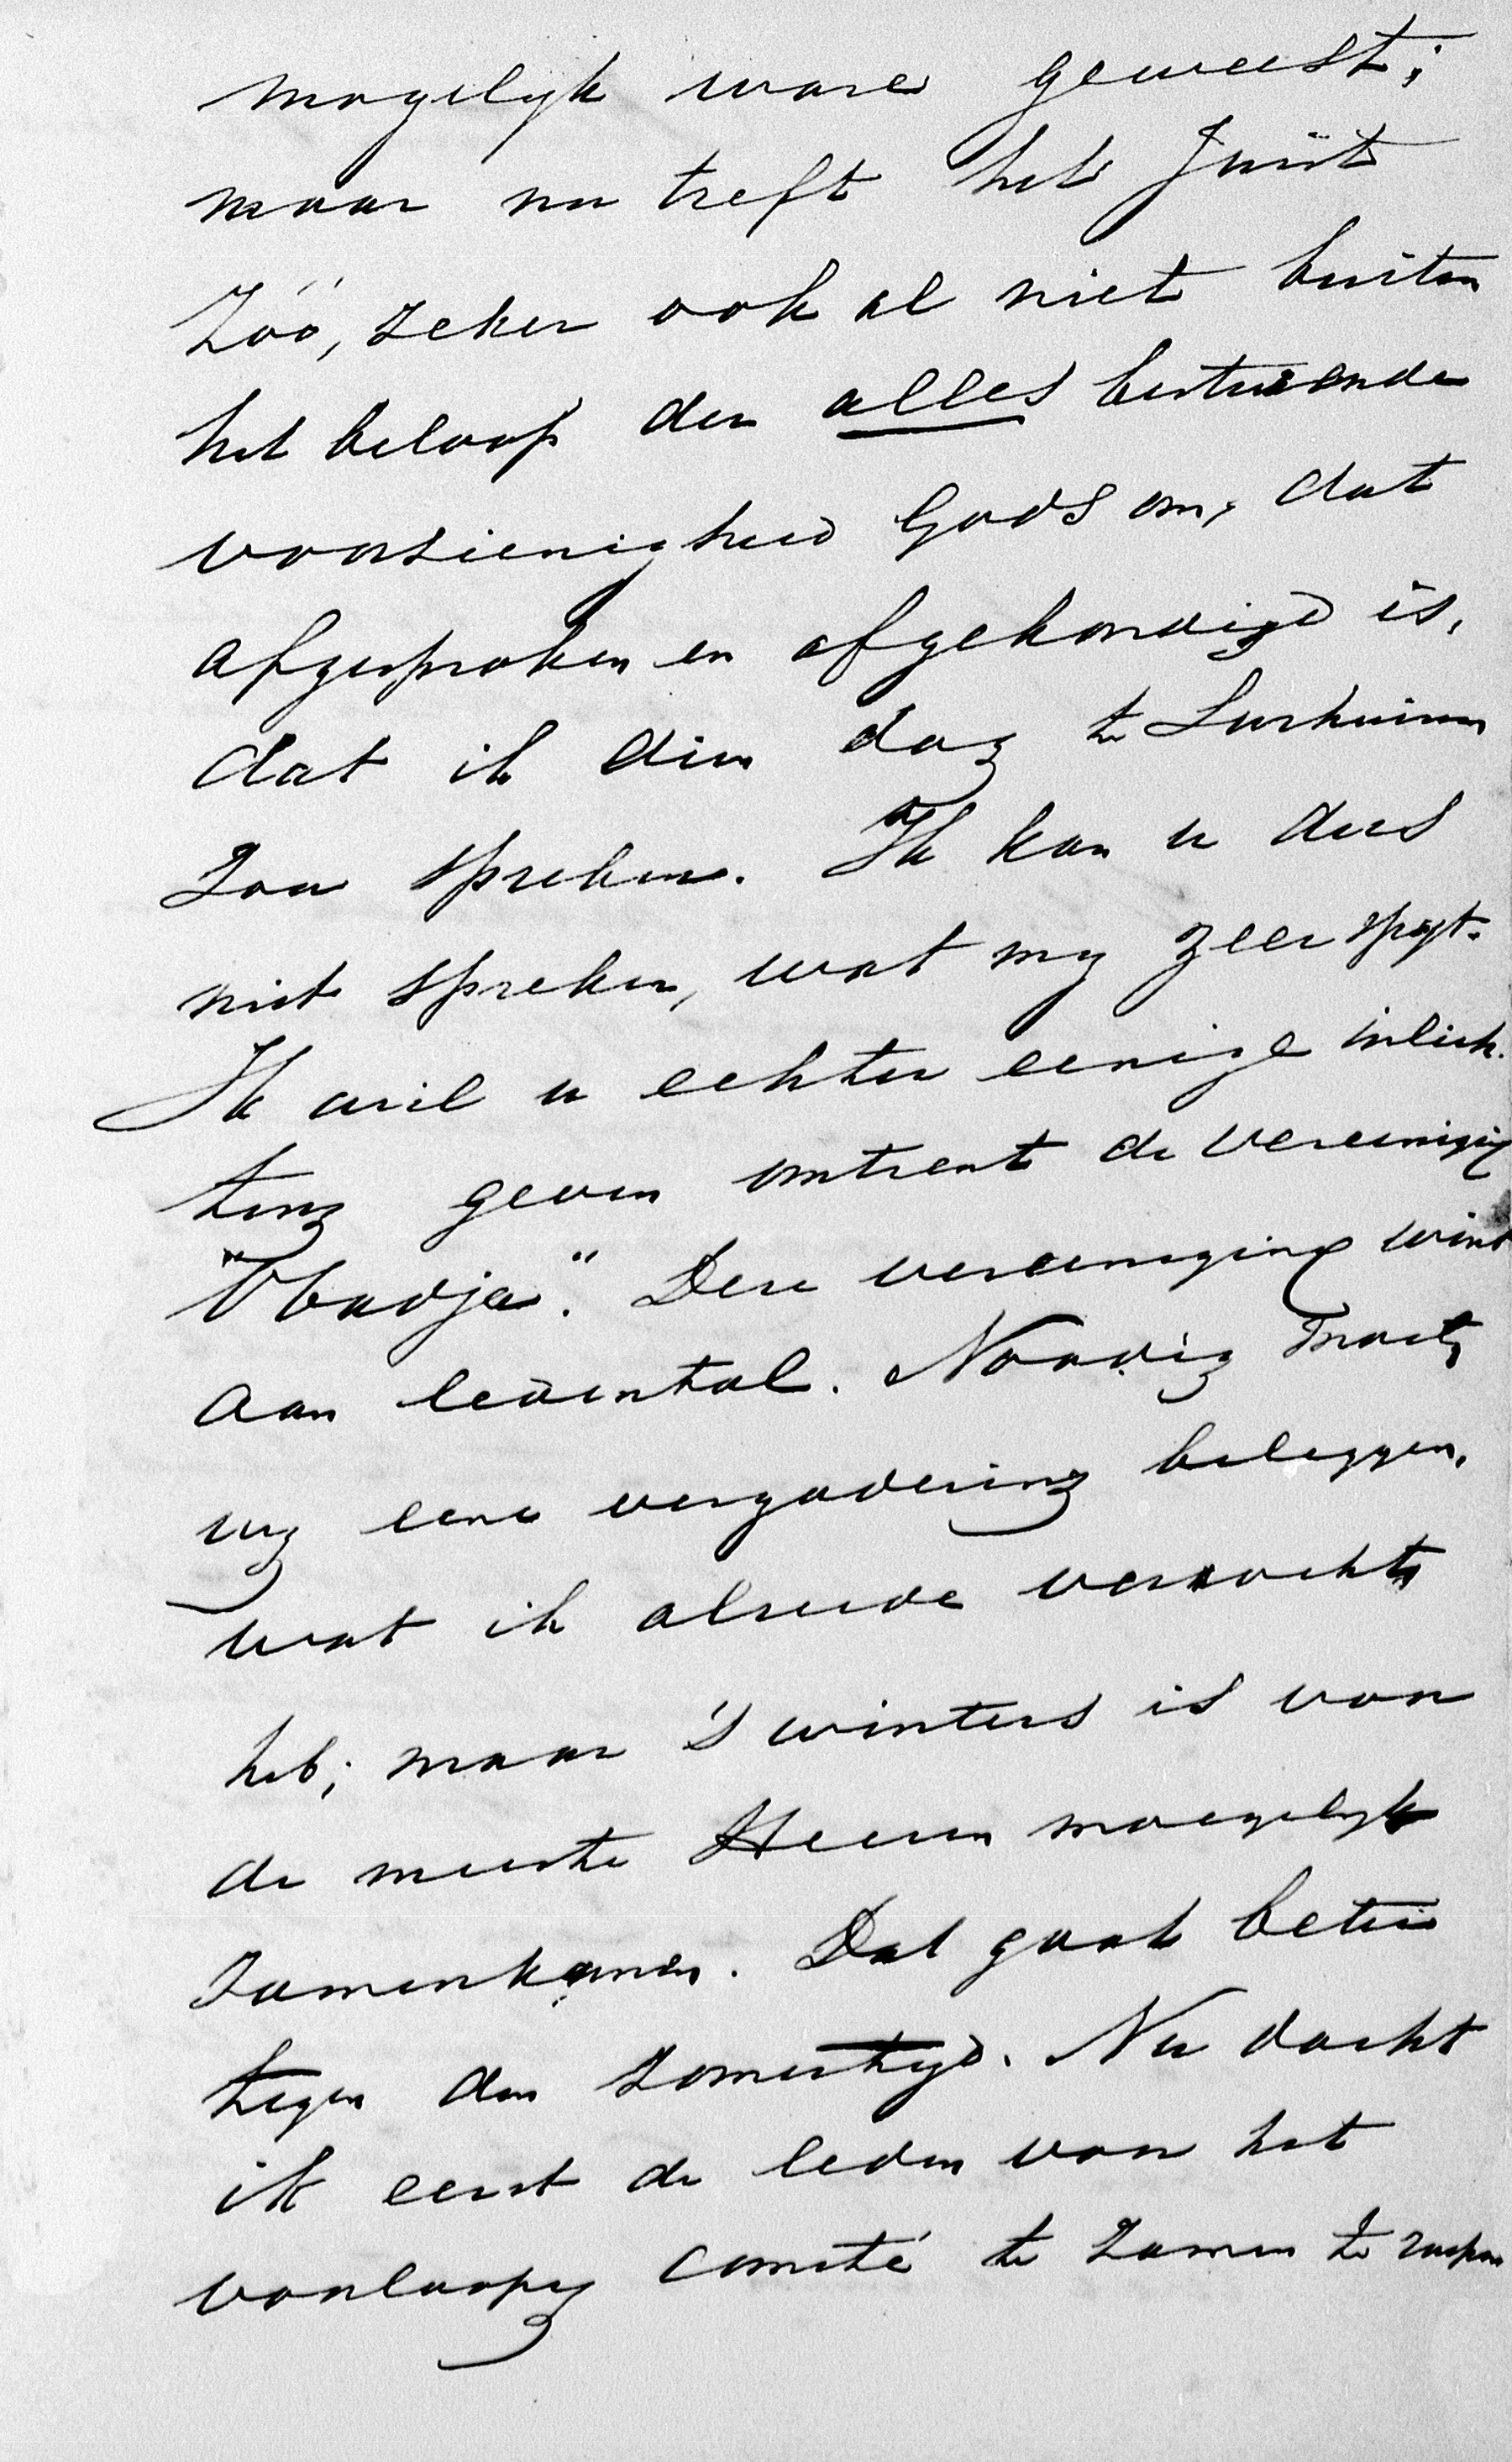 mogelyk ware geweest;
maar nu treft het juist
zóó, zeker ook al niet buiten
het beloop der alles besturende
voorzienigheid Gods om, dat
afgesproken en afgekondigd is,
dat ik dien dag te Surhuizum
zou spreken. Ik kan u dus
niet spreken, wat my zeer spyt.
Ik wil u echter eenige inlich-
ting geven omtrent de vereeniging
"Obadja". Deze vereeniging wint
aan ledental. Noodig moet
wy eene vergadering beleggen,
wat ik alreede verzocht
heb; maar 's winters is van
de meeste Heeren moegelyk
zamenkomen. Dat gaat beter
tegen den zomertyd. Nu dacht
ik eerst de leden van het
voorloopig comité te zamen te roepen